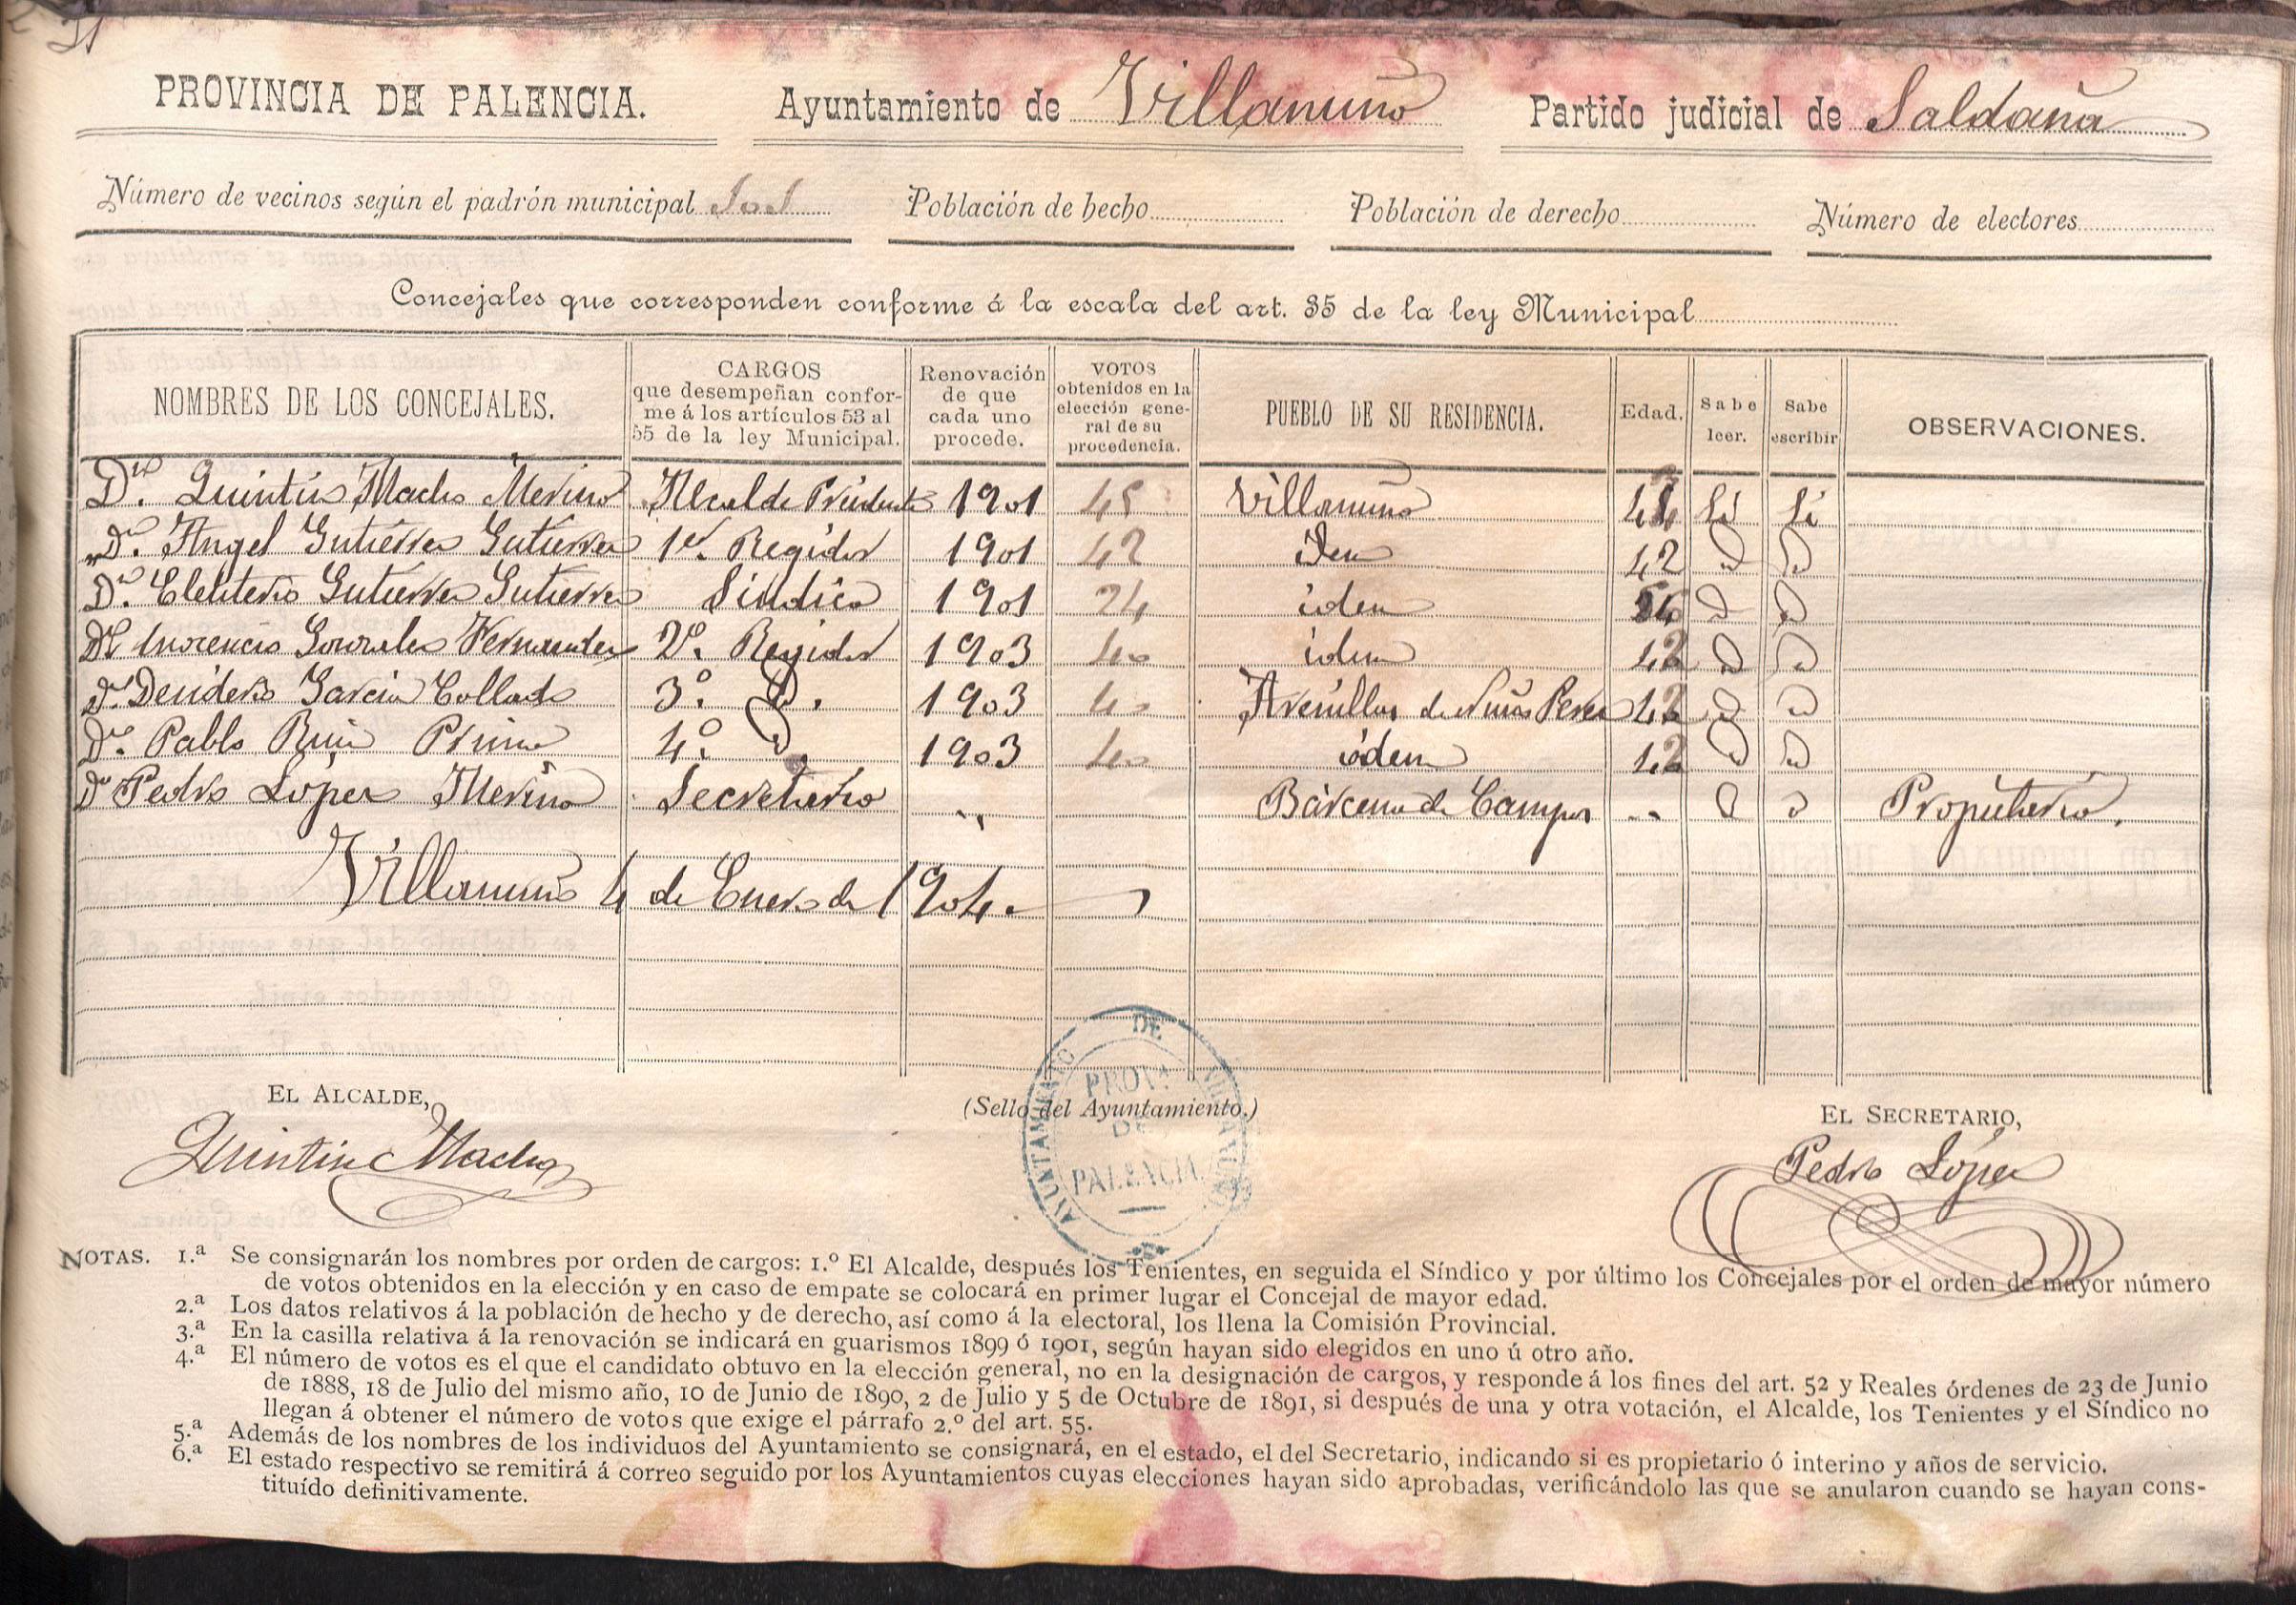 PROVINCIA DE PALENCIA. Ayuntamiento de Villanuño Partido judicial de Saldaña
Número de vecinos según el padrón municipal Población de hecho Población de derecho Número de electores
Concejales que corresponden conforme á la escala del art. 35 de la ley Municipal
NOMBRES DE LOS CONCEJALES. CARGOS que desempeñan conforme á los artículos 53 al 55 de la ley Municipal. Renovación de que cada uno procede. VOTOS obtenidos en la elección general de su procedencia. PUEBLO DE SU RESIDENCIA. Edad. Sabe leer. Sabe escribir OBSERVACIONES.
Dn. Quintin Macho Merino Alcalde Presidente 1901 45 Villanuño 44 Si Si
Dn. Angel Gutierrez Gutierrez 1er. Regidor 1901 42 Idem 42 D D
Dn. Eleuterio Gutierrez Gutierrez Sindico 1901 24 idem D D
Dn. Inocencio Gonzales Fernandez 2º. Regidor 1903 40 idem 42 D D
Dn. Deciderio Garcia Collado 3º. D. 1903 40 Arenillas de Nuño Perez 42 D D
Dn. Pablo Ruiz Primo 4º. D. 1903 40 idem 42 D D
Dn Pedro Lopez Merino Secretario " Barcena de Campos " D D Propietario.
Villanuño 4 de Enero de 1904.
EL ALCALDE, (Sello del Ayuntamiento.) EL SECRETARIO,
Quintin Macho Pedro López
AYUNTAMIENTO DE
PROVA
DE
PALENCIA
NOTAS. 1.ª Se consignarán los nombres por orden de cargos: 1.º El Alcalde, después los Tenientes, en seguida el Síndico y por último los Concejales por el orden de mayor número
de votos obtenidos en la elección y en caso de empate se colocará en primer lugar el Concejal de mayor edad.
2.ª Los datos relativos á la población de hecho y de derecho, así como á la electoral, los llena la Comisión Provincial.
3.ª En la casilla relativa á la renovación se indicará en guarismos 1899 ó 1901, según hayan sido elegidos en uno ú otro año.
4.ª El número de votos es el que el candidato obtuvo en la elección general, no en la designación de cargos, y responde á los fines del art. 52 y Reales órdenes de 23 de Junio
de 1888, 18 de Julio del mismo año, 10 de Junio de 1890, 2 de Julio y 5 de Octubre de 1891, si después de una y otra votación, el Alcalde, los Tenientes y el Síndico no
llegan á obtener el número de votos que exige el párrafo 2.º del art. 55.
5.ª Además de los nombres de los individuos del Ayuntamiento se consignará, en el estado, el del Secretario, indicando si es propietario ó interino y años de servicio.
6.ª El estado respectivo se remitirá á correo seguido por los Ayuntamientos cuyas elecciones hayan sido aprobadas, verificándolo las que se anularon cuando se hayan cons-
tituído definitivamente.